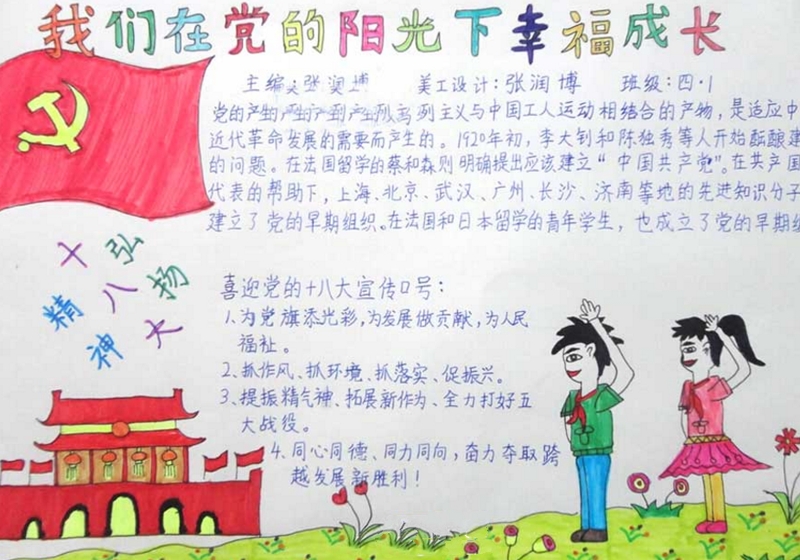 我们在党的阳光下幸福成长
主编:张润博 美工设计:张润博 班级:四·1
党的产生 列主义与中国工人运动相结合的产物，是适应中
近代革命发展的需要而产生的。1920年初，李大钊和陈独秀等人开始酝酿建
的问题。在法国留学的蔡和森则明确提出应该建立“中国共产党”。在共产国
代表的帮助下，上海、北京、武汉、广州、长沙、济南等地的先进知识分子
建立了党的早期组织。在法国和日本留学的青年学生，也成立了党的早期组
弘扬
十八大
精神
喜迎党的十八大宣传口号：
1、为党旗添光彩，为发展做贡献，为人民
福祉。
2、抓作风、抓环境、抓落实、促振兴。
3、提振精气神、拓展新作为、全力打好五
大战役。
4、同心同德、同力同向，奋力夺取跨
越发展新胜利！